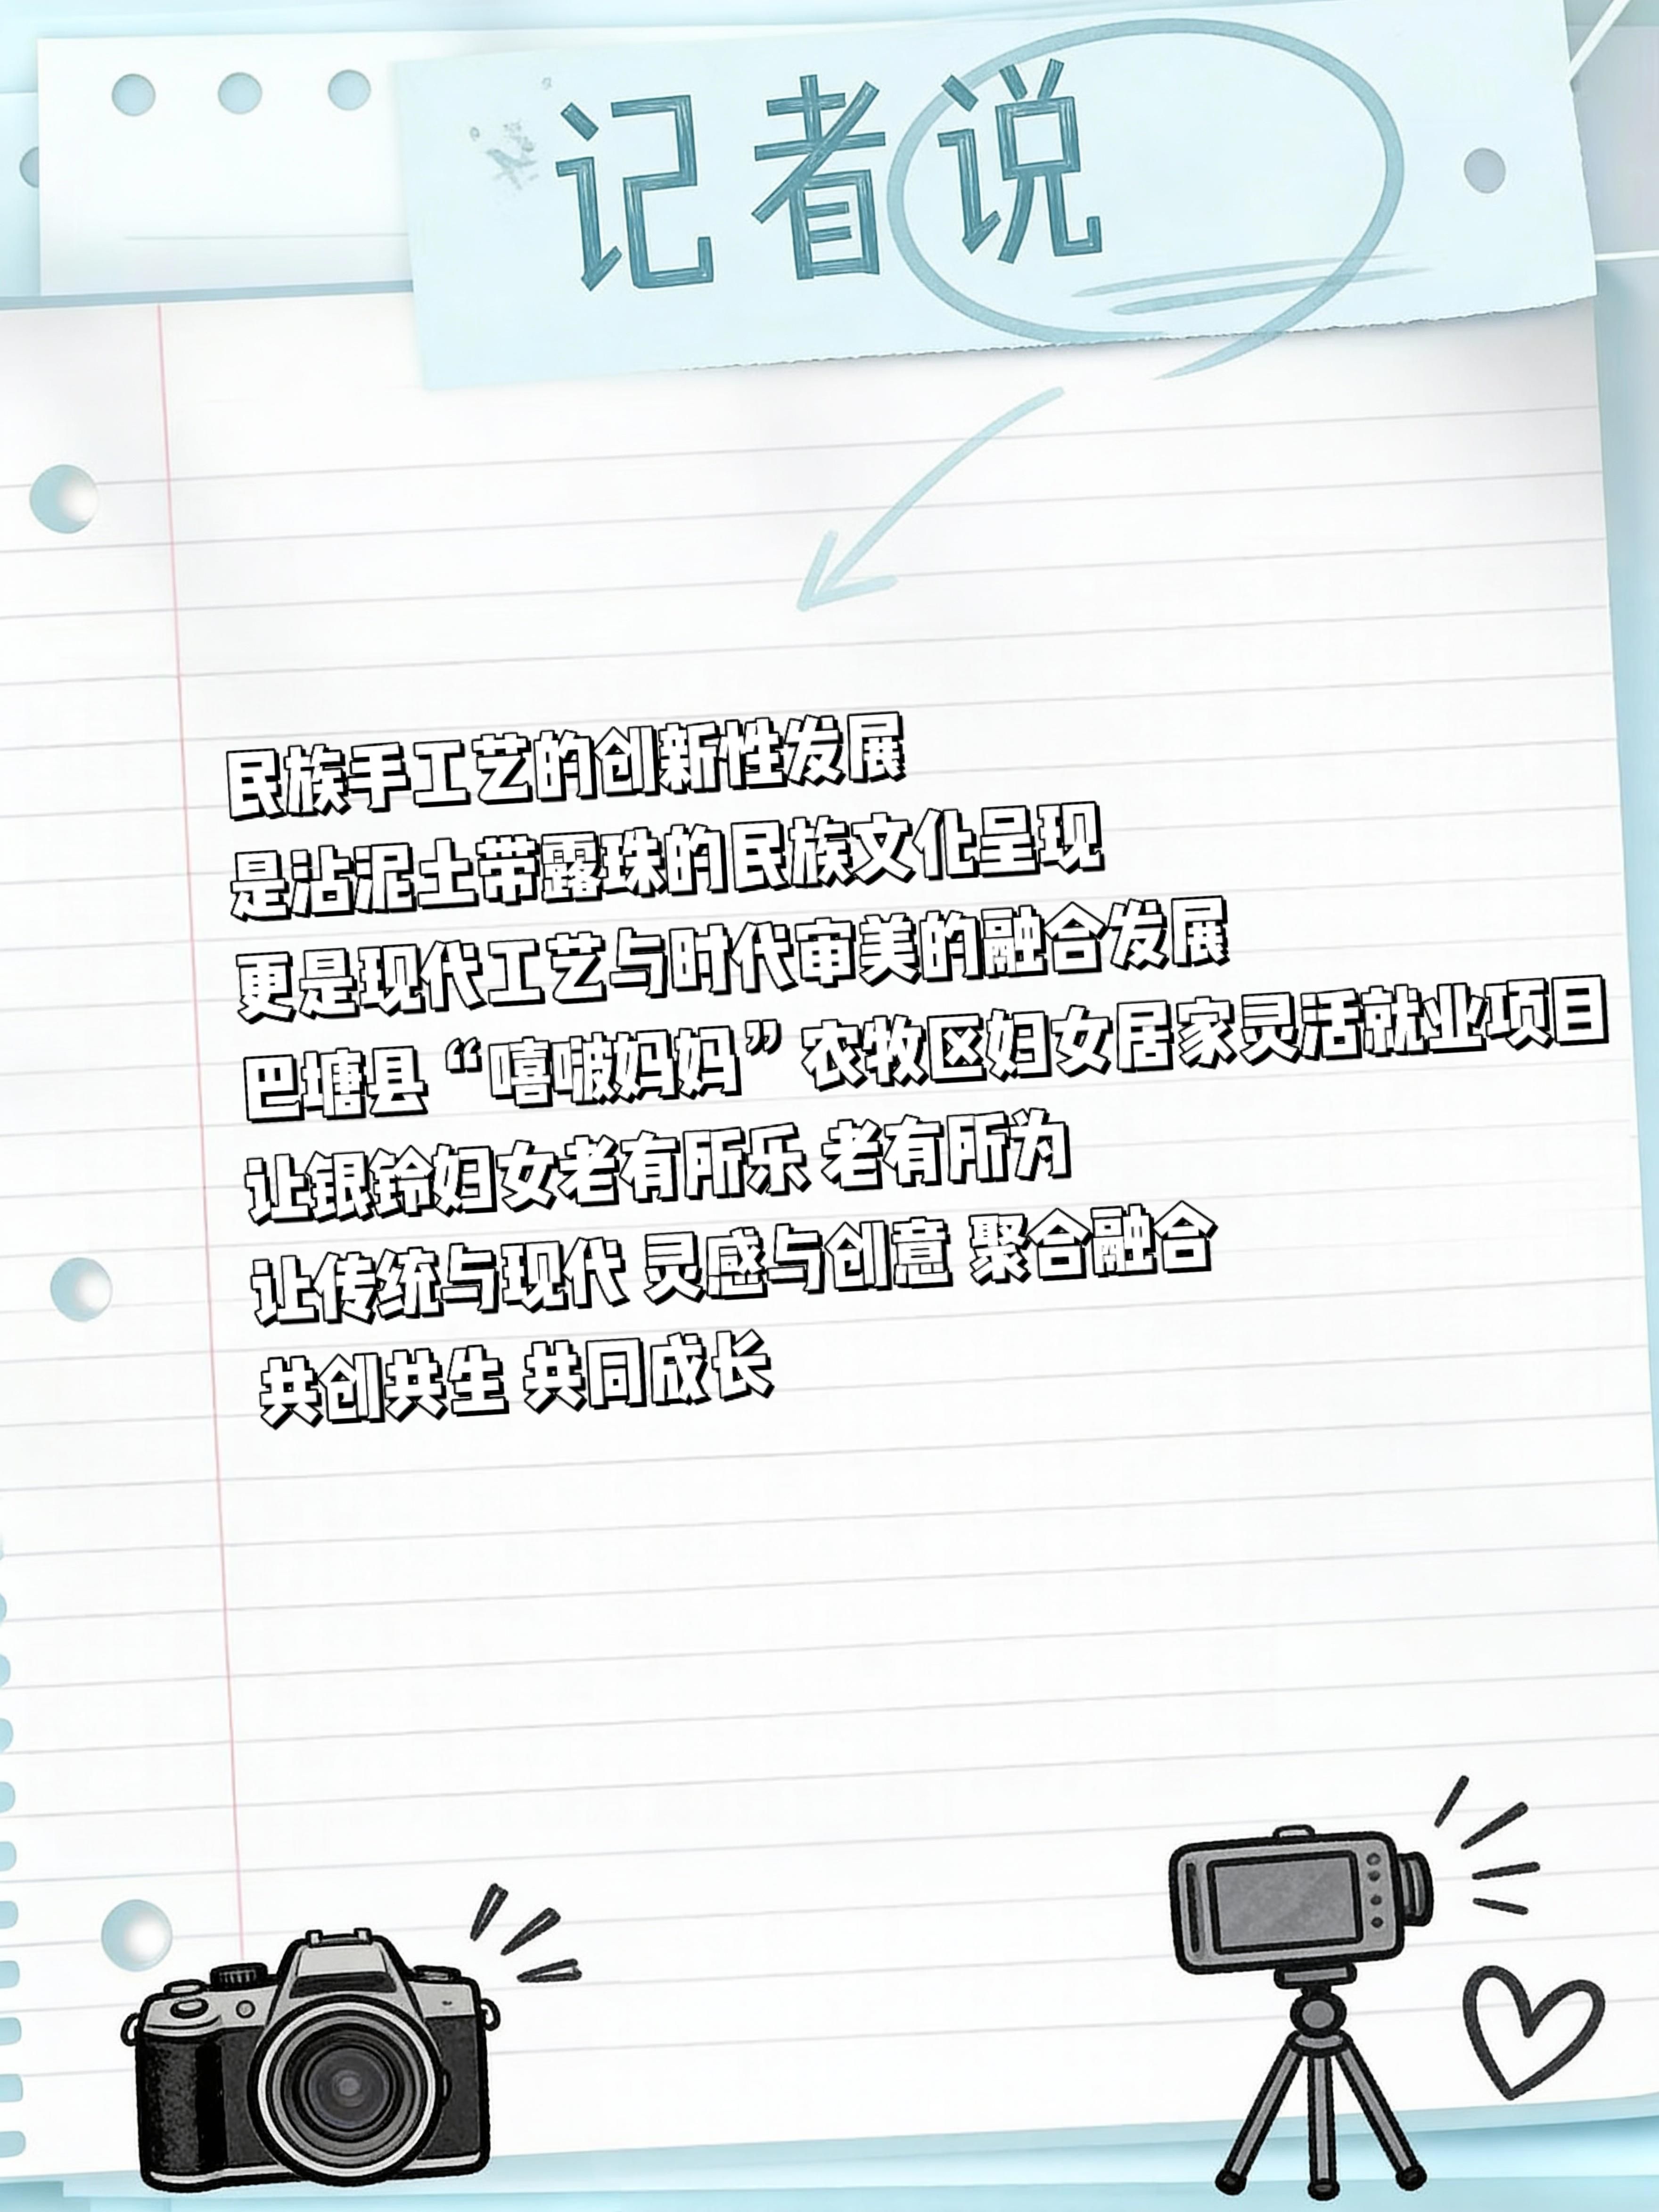 记者说
民族手工艺的创新性发展
是沾泥土带露珠的民族文化呈现
更是现代工艺与时代审美的融合发展
巴塘县“嘻啵妈妈”农牧区妇女居家灵活就业项目
让银铃妇女老有所乐 老有所为
让传统与现代 灵感与创意 聚合融合
共创共生 共同成长